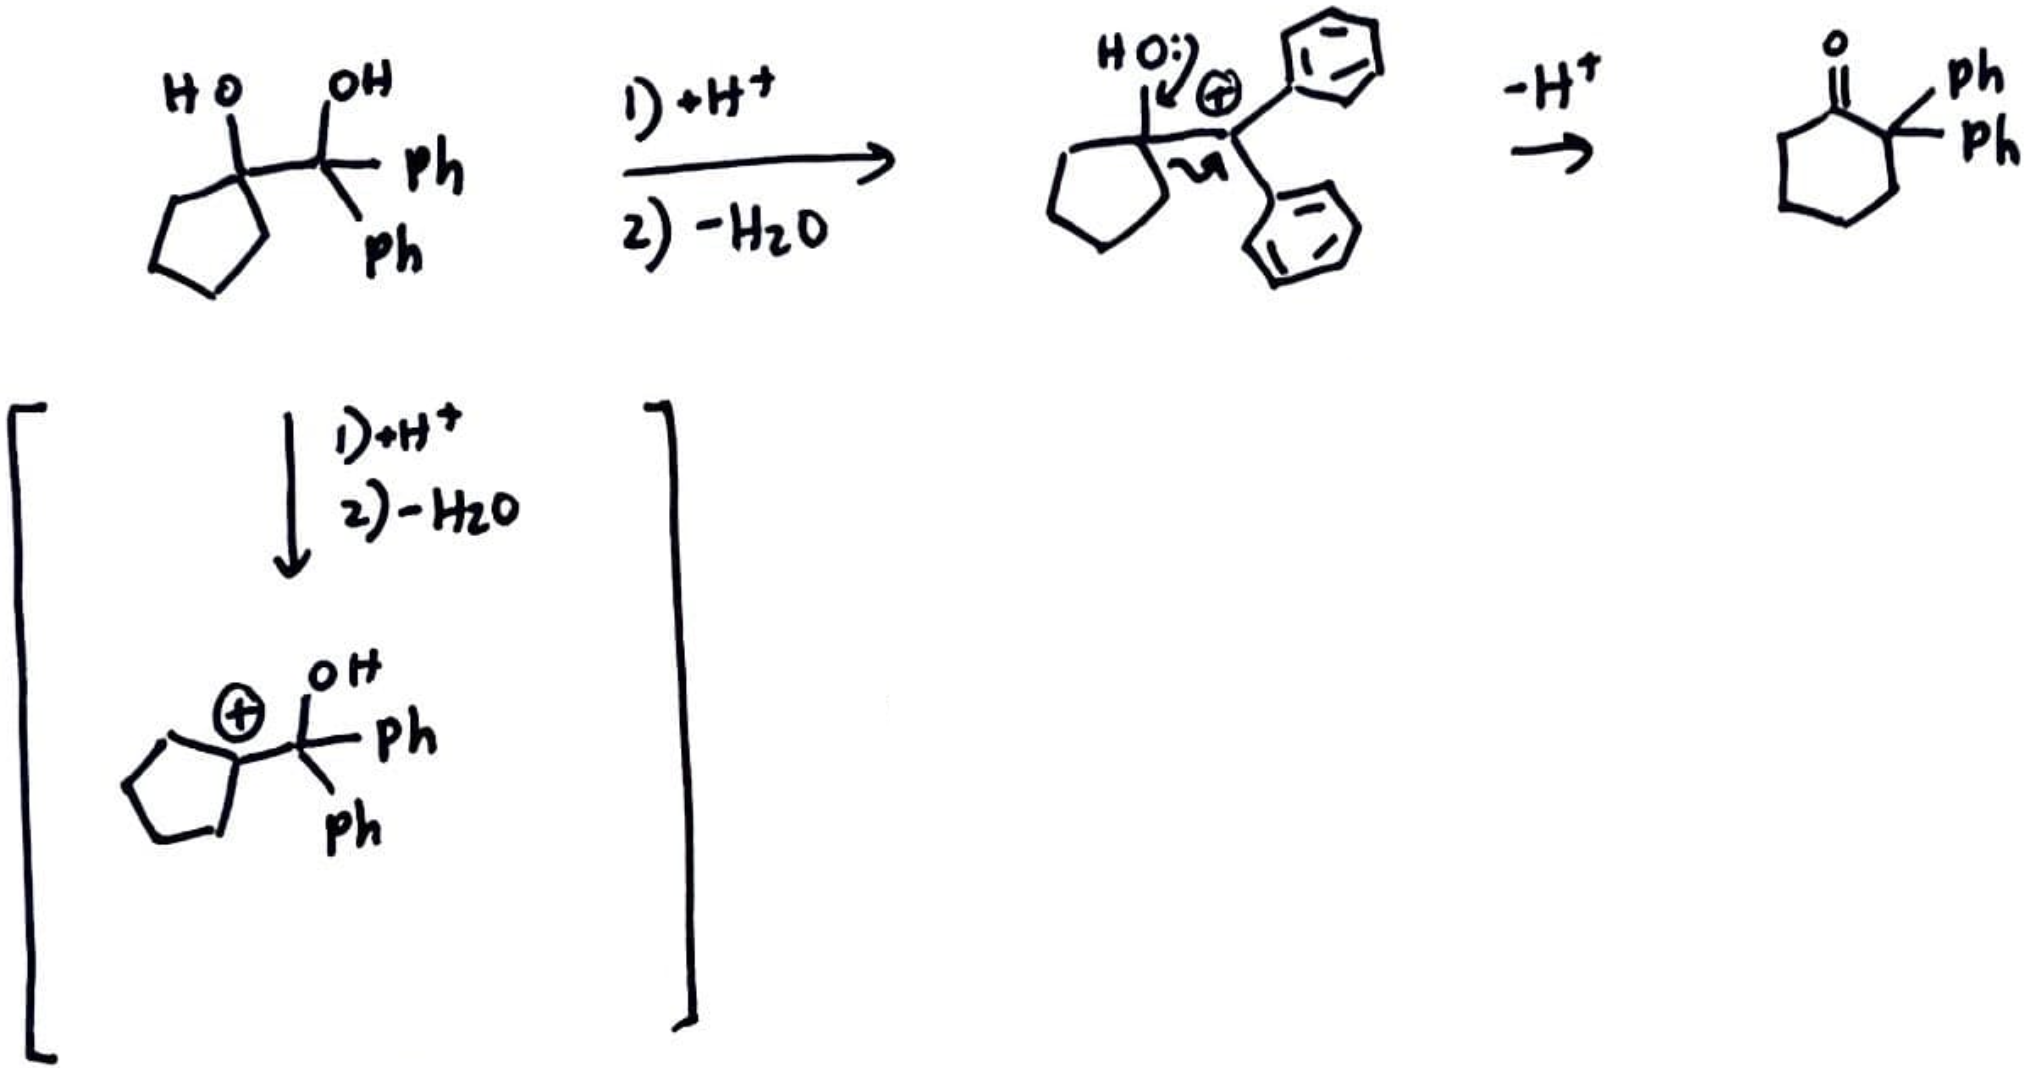 HO OH
Ph
Ph
1) +H⁺
2) -H₂O
HO:
⊕
-H⁺
O
Ph
Ph
1) +H⁺
2) -H₂O
⊕
OH
Ph
Ph